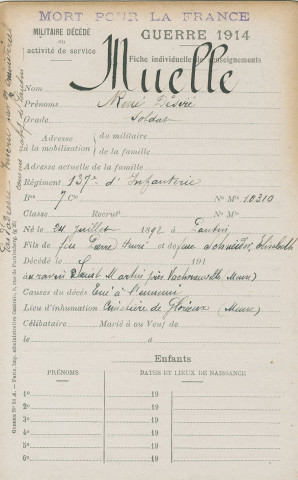 MORT POUR LA FRANCE
MILITAIRE DÉCÉDÉ
en
activité de service
GUERRE 1914
Fiche individuelle de renseignements
Nom Muelle
Prénoms René Désiré
Grade Soldat
Adresse du militaire
à la mobilisation de la famille
Adresse actuelle de la famille
Régiment 137e d'Infanterie
Bon 7 Cie No Mle 10310
Classe Recrut No Mle
Né le 24 juillet 1892 à Pantin
Fils de feu Pierre Henri et de feue Schneider Elisabeth
Décédé le 191
au ravin Saint Martin près Vacherauville (Meuse)
Causes du décès Tué à l'ennemi
Lieu d'inhumation Cimetière de Glorieux (Meuse)
Célibataire Marié à ou Veuf de
le à
Enfants
PRÉNOMS DATES ET LIEUX DE NAISSANCE
1o 19
2o 19
3o 19
4o 19
5o 19
6o 19
Pas d'adresse